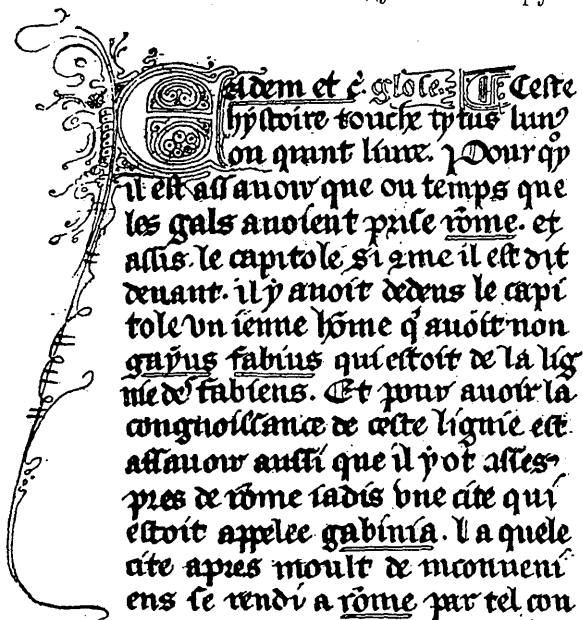 Eadem et c̃. glose. Ceste
hystoire touche tytus liuiꝰ
ou quint liure. Pour quoy
il est assauoir que ou temps que
les gals auoient prise rõme. et
assis. le capitole si ꝯme il est dit
deuant. il y auoit dedens le capi
tole vn ieune hõme q̃ auoit non
gayus fabius qui estoit de la lig
nie des fabiens. Et pour auoir la
congnoissance de ceste lignie est
assauoir aussi que il y ot asses
pres de rõme iadis vne cite qui
estoit appelee gabinia. la quele
cite apres moult de inconueni
ens se rendi a rõme par tel con